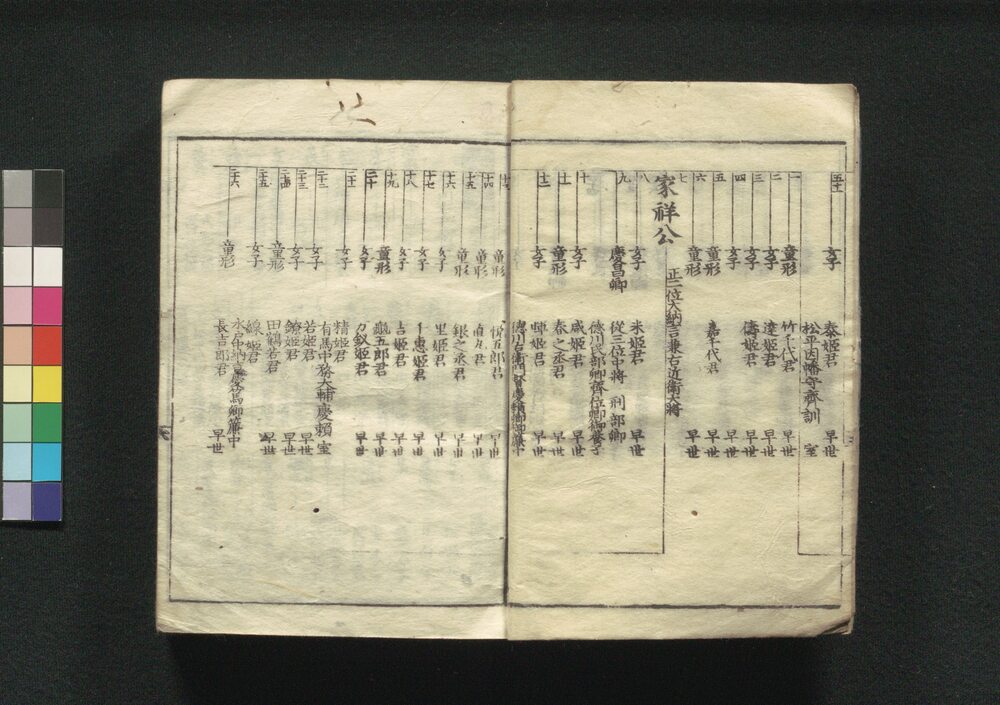 五十一 女子 泰姫君 早世
松平因幡守齊訓 室
一 童形 竹千代君 早世
二 女子 達姫君 早世
三 女子 儔姫君 早世
四 女子 早世
五 童形 嘉千代君 早世
六 童形 早世
七
家祥公 正二位大納言兼右近衛大將
八 女子 米姫君 早世
九 慶昌卿 從三位中將 刑部卿
德川民部卿齊位卿御養子
十 女子 咸姫君 早世
十一 童形 春之丞君 早世
十二 女子 暉姫君 早世
德川右衛門督慶頼卿御簾中
童形 悦五郎君 早世
十四 童形 直丸君 早世
十五 童形 銀之丞君 早世
十六 女子 里姫君 早世
十七 女子 千惠姫君 早世
十八 女子 吉姫君 早世
十九 童形 龜五郎君 早世
二十 女子 万釵姫君 早世
二十一 女子 精姫君
有馬中務大輔慶頼 室
二十二 女子 若姫君 早世
二十三 女子 鐐姫君 早世
二十四 童形 田鶴若君 早世
二十五 女子 線姫君
水戸中納言慶篤卿簾中
二十六 童形 長吉郎君 早世